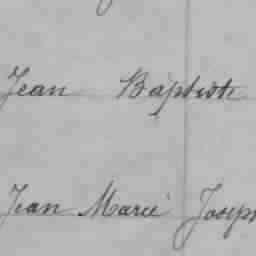 Jean Baptiste
Jean Marie Joseph